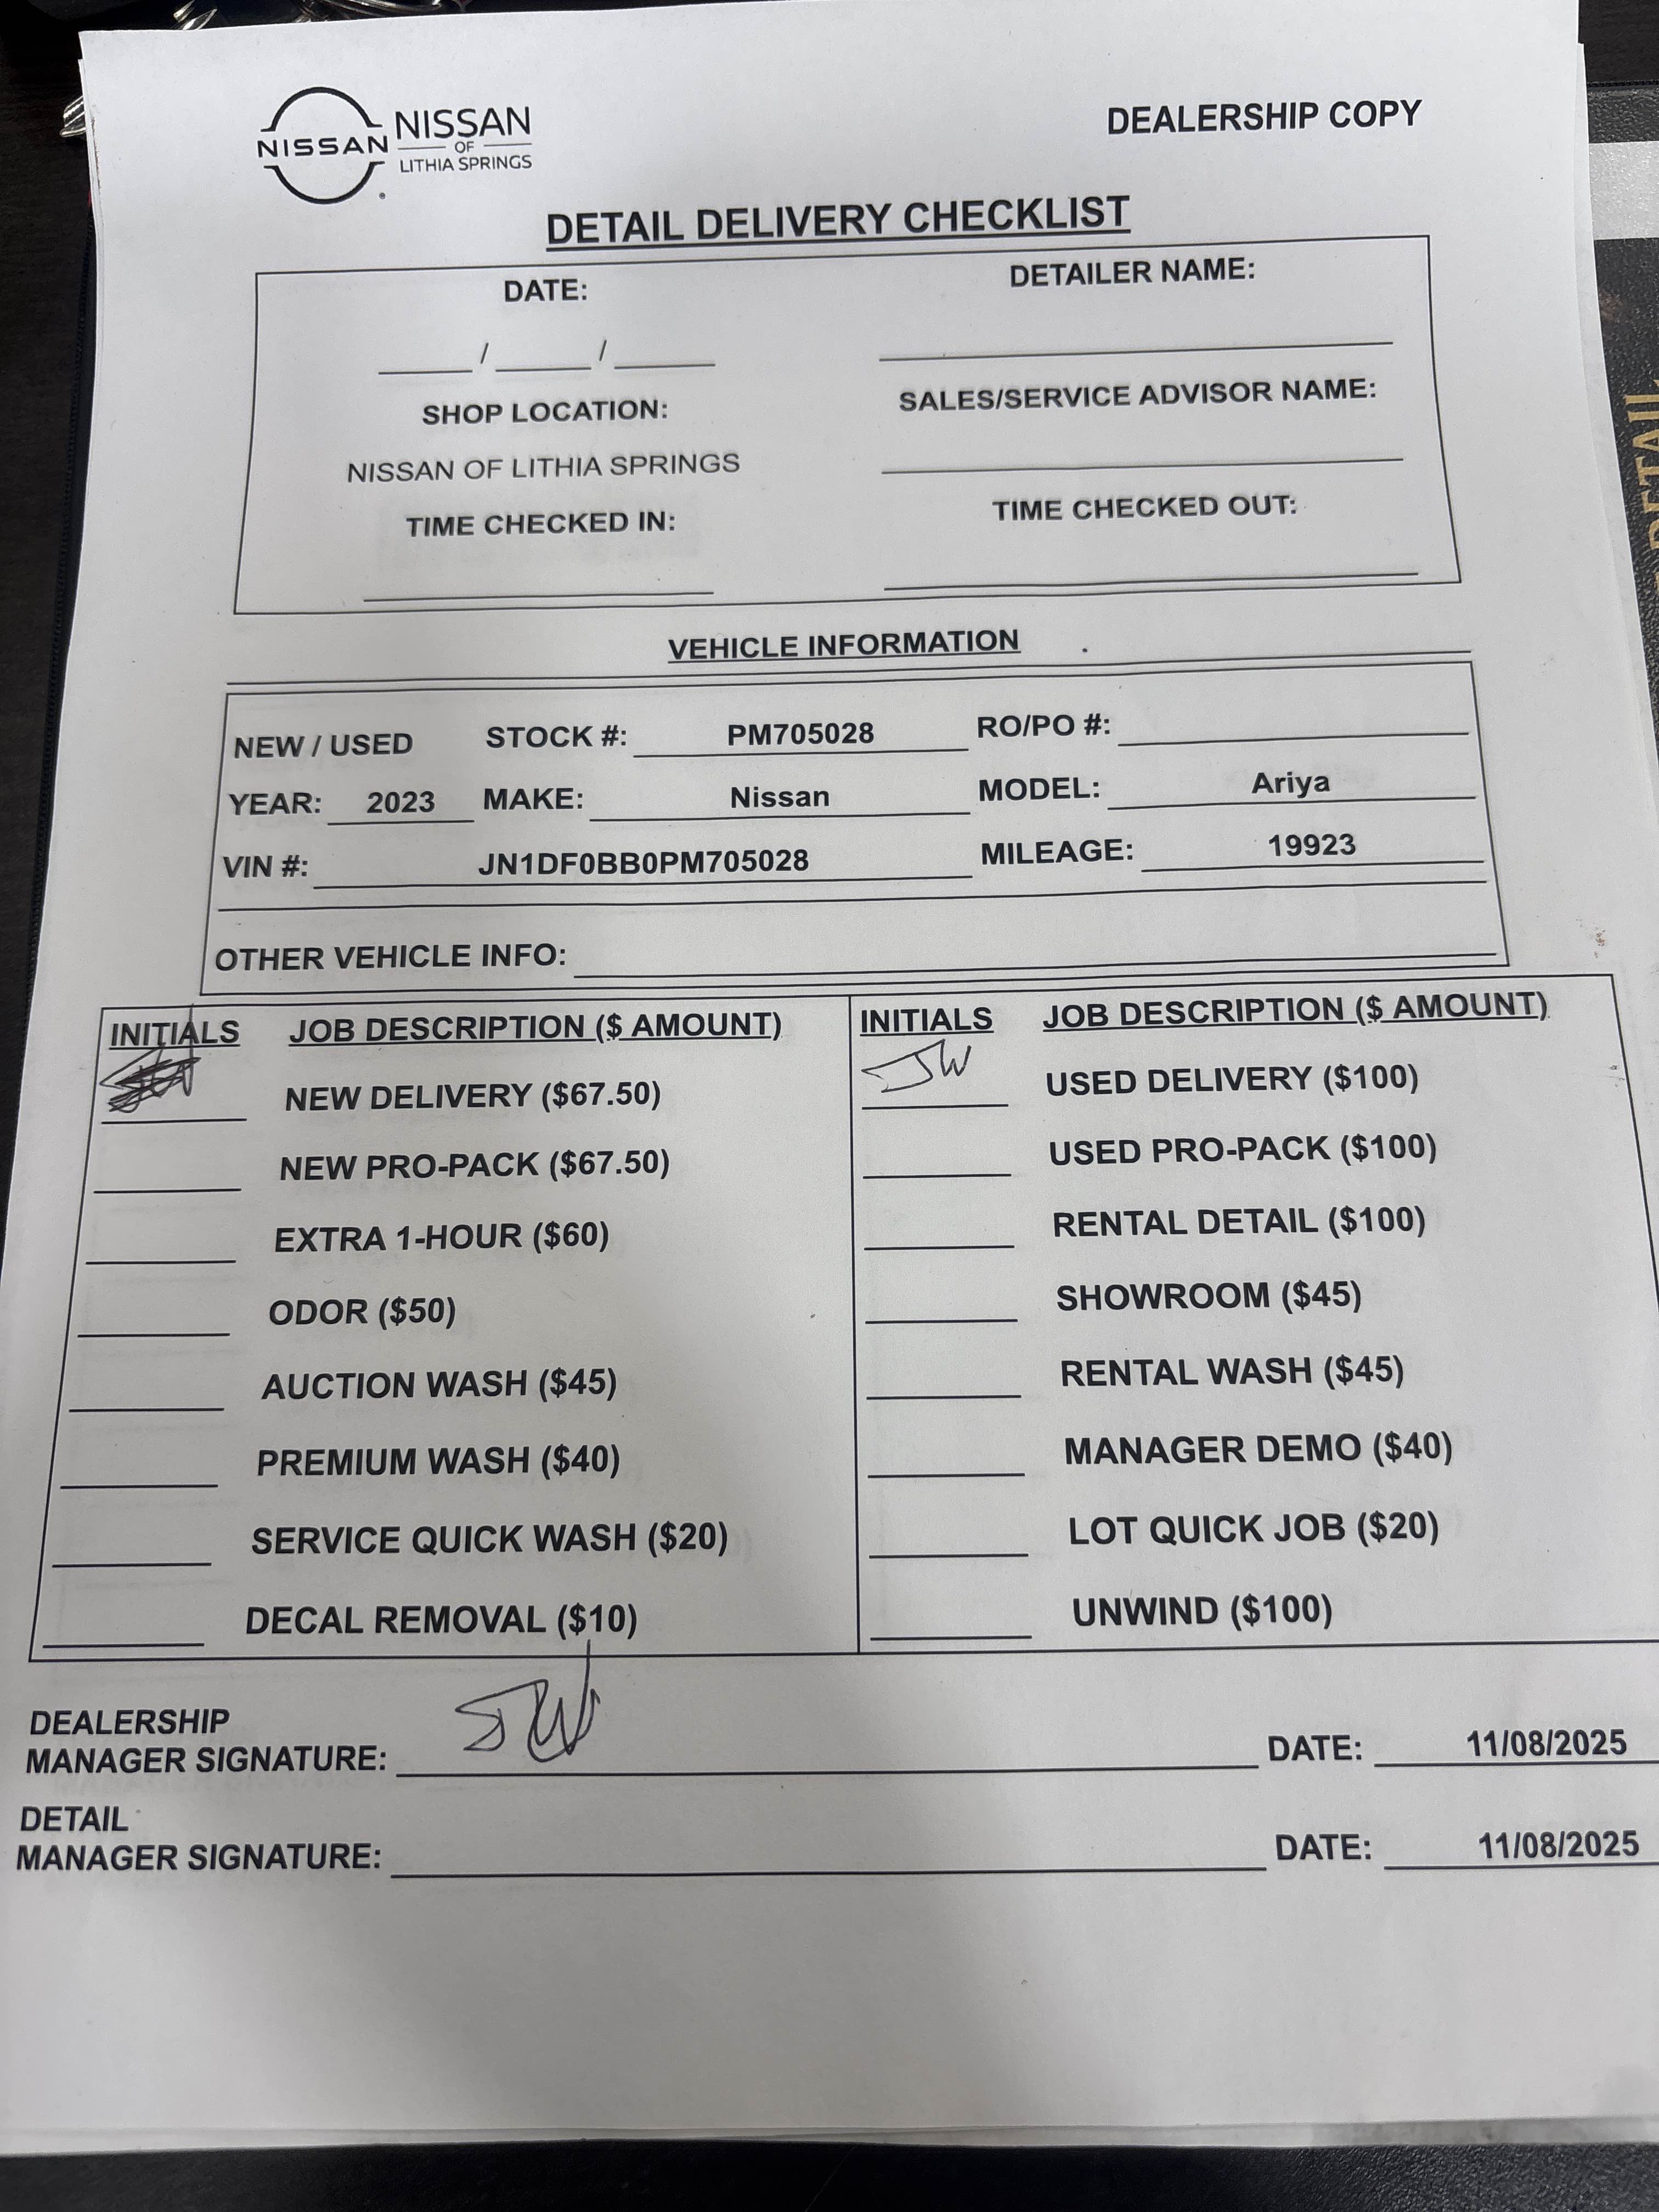 NISSAN
NISSAN
OF
LITHIA SPRINGS
DEALERSHIP COPY
DETAIL DELIVERY CHECKLIST
DATE:
DETAILER NAME:
/ /
SHOP LOCATION:
SALES/SERVICE ADVISOR NAME:
NISSAN OF LITHIA SPRINGS
TIME CHECKED IN:
TIME CHECKED OUT:
VEHICLE INFORMATION
NEW / USED STOCK #: PM705028 RO/PO #:
YEAR: 2023 MAKE: Nissan MODEL: Ariya
VIN #: JN1DF0BB0PM705028 MILEAGE: 19923
OTHER VEHICLE INFO:
INITIALS JOB DESCRIPTION ($ AMOUNT)
NEW DELIVERY ($67.50)
NEW PRO-PACK ($67.50)
EXTRA 1-HOUR ($60)
ODOR ($50)
AUCTION WASH ($45)
PREMIUM WASH ($40)
SERVICE QUICK WASH ($20)
DECAL REMOVAL ($10)
INITIALS JOB DESCRIPTION ($ AMOUNT)
JW USED DELIVERY ($100)
USED PRO-PACK ($100)
RENTAL DETAIL ($100)
SHOWROOM ($45)
RENTAL WASH ($45)
MANAGER DEMO ($40)
LOT QUICK JOB ($20)
UNWIND ($100)
DEALERSHIP
MANAGER SIGNATURE: JW DATE: 11/08/2025
DETAIL
MANAGER SIGNATURE: DATE: 11/08/2025
DETAIL